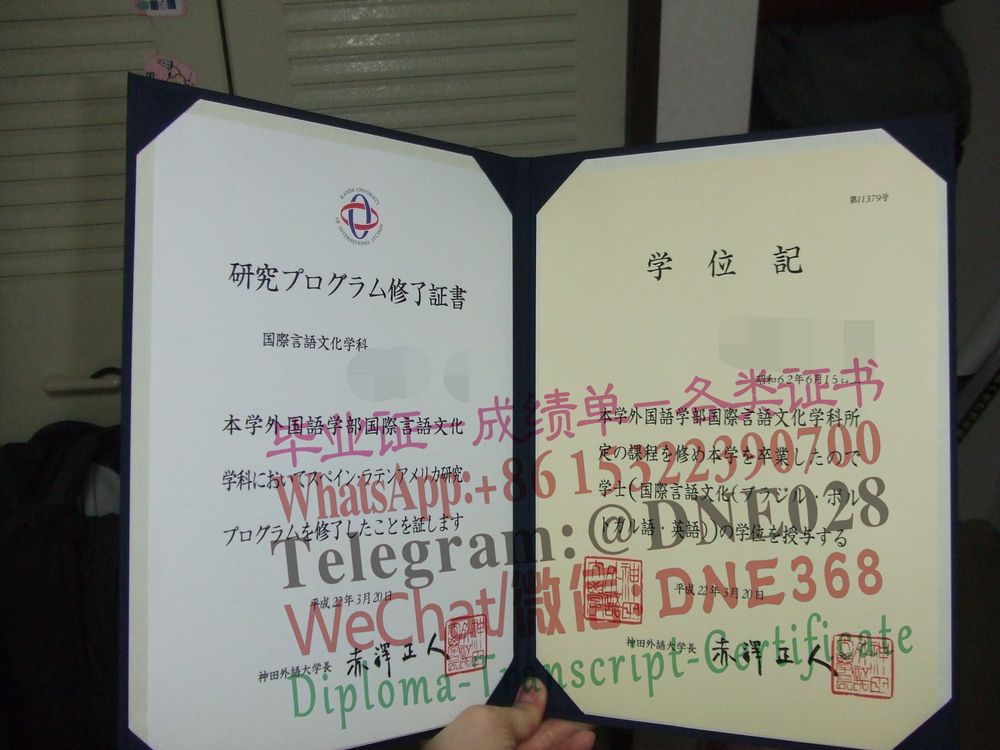 KANDA UNIVERSITY
OF INTERNATIONAL STUDIES
研究プログラム修了証書
国際言語文化学科
本学外国語学部国際言語文化
学科においてスペイン・ラテンアメリカ研究
プログラムを修了したことを証します
平成22年3月20日
神田外語大学長 赤澤正人
第11379号
学位記
昭和62年6月15
本学外国語学部国際言語文化学科所
定の課程を修め本学を卒業したので
学士(国際言語文化(ブラジル・ポル
トガル語・英語))の学位を授与する
平成22年3月20日
神田外語大学長 赤澤正人
毕业证—成绩单—各类证书
WhatsApp:+86 15322390700
Telegram:@DNE028
WeChat/微信:DNE368
Diploma-Transcript-Certificate